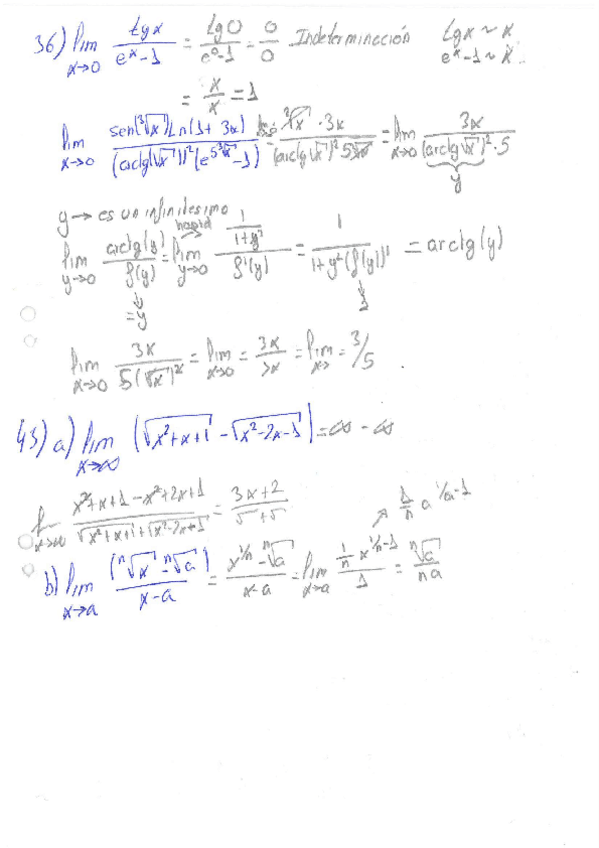 36) lim x→0 tgx / (e^x-1) = tg0 / (e^0-1) = 0/0 Indeterminación tgx ~ x
e^x-1 ~ x
= x/x = 1
lim x→0 sen(∛x) Ln(1+3x) / ((arctg(√x))² (e^(5∛x) -1)) = ∛x · 3x / ((arctg √x)² 5∛x) = lim x→0 3x / ((arctg √x)² · 5)
y
y → es un infinitesimo
lim y→0 arctg(y) / f(y) = lim y→0 (1/(1+y²)) / f'(y) = 1 / (1+y² (f(y))') = arctg(y)
= y 1
lim x→0 3x / (5(√x)²) = lim x→0 = 3x / 5x = lim x→ = 3/5
43) a) lim x→∞ (√(x²+x+1) - √(x²-2x-1)) = ∞ - ∞
x→∞ (x²+x+1-x²+2x+1) / (√(x²+x+1) + √(x²-2x+1)) = (3x+2) / (√ + √) 1/n a^(1/a-1)
b) lim x→a (ⁿ√x - ⁿ√a) / (x-a) = (x^(1/n) - ⁿ√a) / (x-a) = lim x→a (1/n x^(1/n-1)) / 1 = ⁿ√a / na